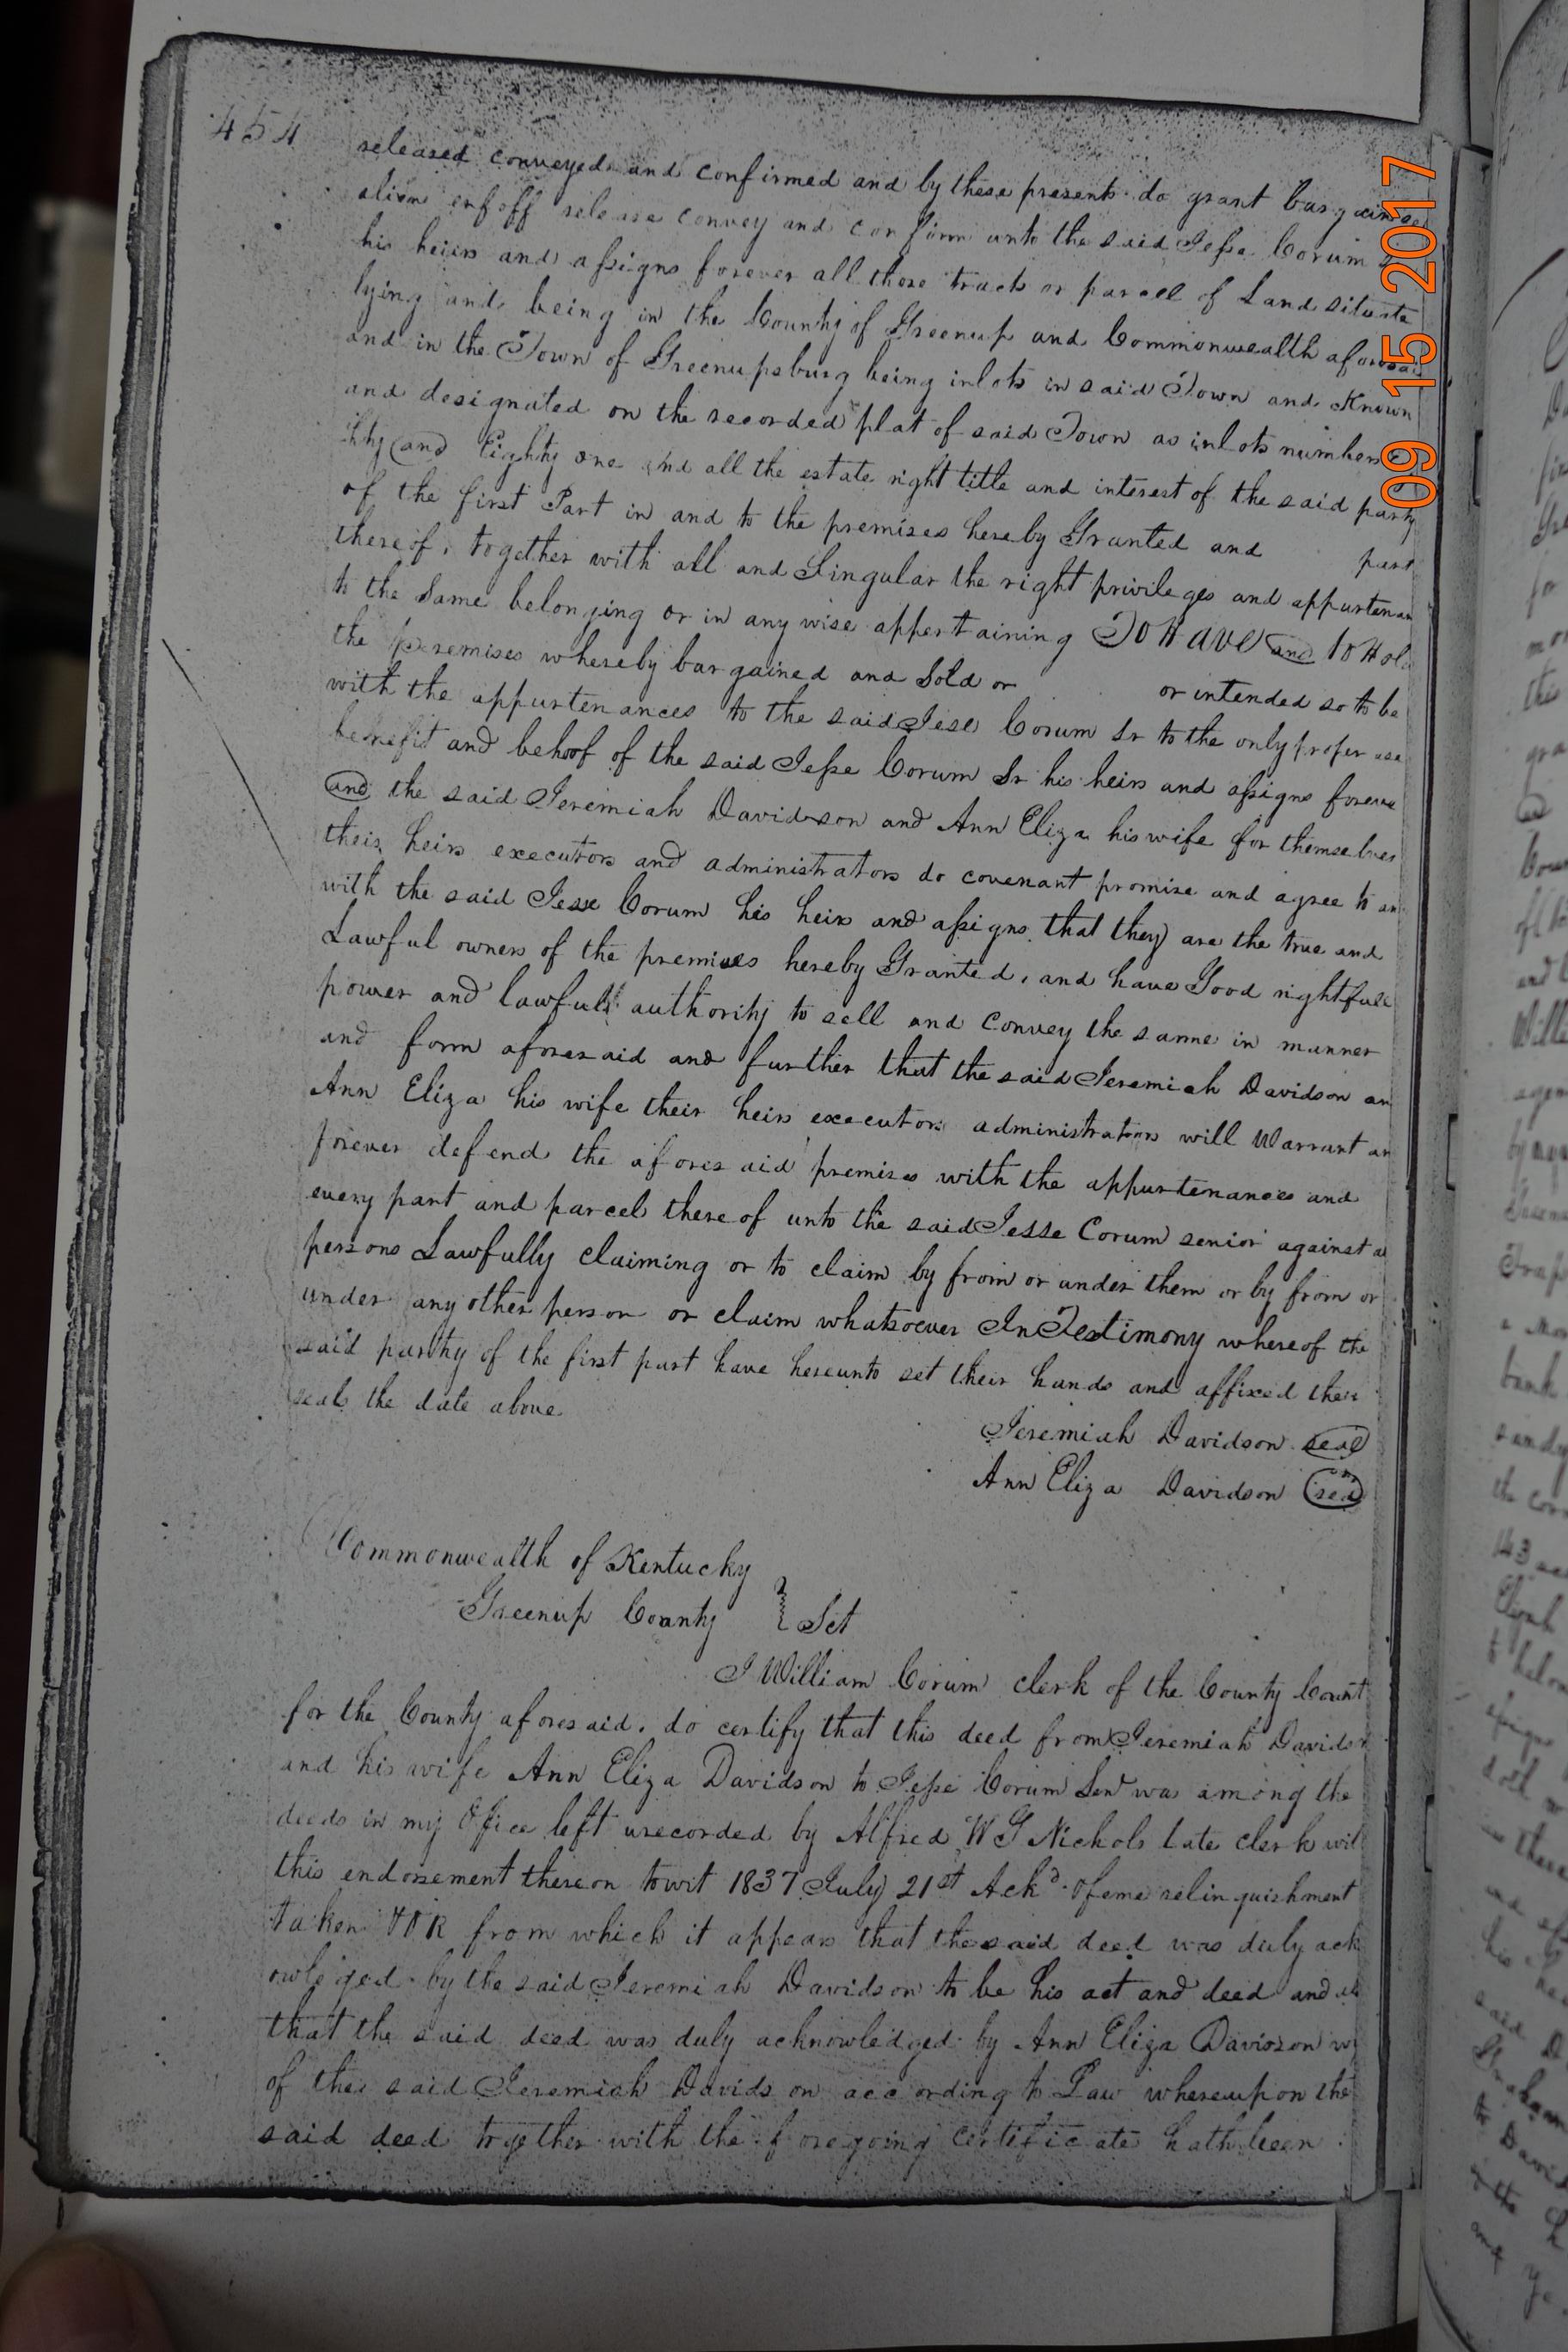 454
released conveyed and confirmed and by these presents do grant bargain
alien enfeoff release convey and confirm unto the said Jesse Corum
his heirs and assigns forever all those tracts or parcell of Land situate
lying and being in the County of Greenup and Commonwealth aforesaid
and in the Town of Greenupsburg being inlots in said Town and Known
and designated on the recorded plat of said Town as inlots numbers
and Eighty one and all the estate right title and interest of the said party
of the first Part in and to the premises hereby Granted and part
thereof, together with all and Singular the right privileges and appurtenan
to the Same belonging or in any wise appertaining To Have and to Hold
the premises whereby bargained and Sold or or intended so to be
with the appurtenances to the said Jese Corum Sr to the only proper use
benefit and behoof of the said Jesse Corum Sr his heirs and assigns foreve
and the said Jeremiah Davidson and Ann Eliza his wife for themselves
their heirs executors and administrators do covenant promise and agree to an
with the said Jesse Corum his heirs and assigns that they are the true and
Lawful owners of the premises hereby Granted, and have Good rightfull
power and lawfull authority to sell and convey the same in manner
and form aforesaid and further that the said Jeremiah Davidson an
Ann Eliza his wife their heirs executors administrators will Warrant an
forever defend the aforesaid premises with the appurtenances and
every part and parcel thereof unto the said Jesse Corum senior against a
persons Lawfully claiming or to claim by from or under them or by from or
under any other person or claim whatsoever In Testimony whereof the
said parthy of the first part have hereunto set their hands and affixed their
seals the date above
Jeremiah Davidson seal
Ann Eliza Davidson seal
Commonwealth of Kentucky
Greenup County } Sct
I William Corum clerk of the County Court
for the County aforesaid, do certify that this deed from Jeremiah Davidson
and his wife Ann Eliza Davidson to Jesse Corum Senr was among the
deeds in my Office left urecorded by Alfred W G Nichols late clerk wit
this endorsement thereon towit 1837 July 21st Ackd feme relinquishment
taken from which it appears that the said deed was duly ack
owleged by the said Jeremiah Davidson to be his act and deed and al
that the said deed was duly acknowledged by Ann Eliza Davidson w
of the said Jeremiah Davidson according to Law whereupon the
said deed together with the foregoing certificate hath been
09 15 2017